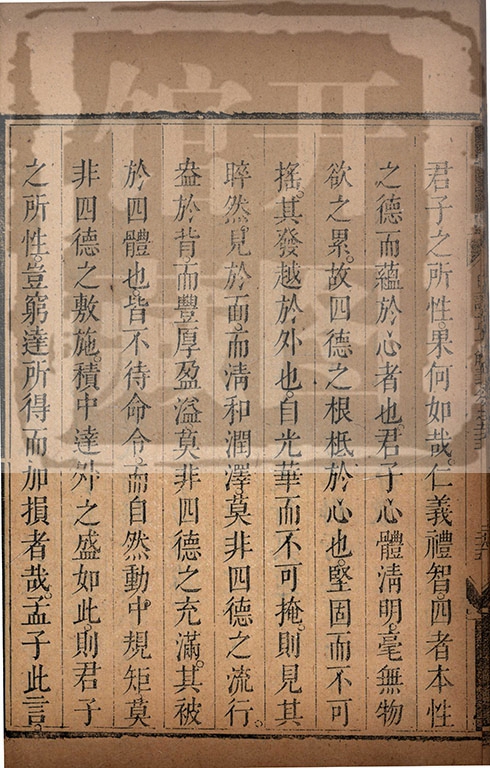 君子之所性。果何如哉。仁義禮智。四者本性
之德而蘊於心者也。君子心體清明。毫無物
欲之累。故四德之根柢於心也。堅固而不可
搖。其發越於外也。自光華而不可掩。則見其
睟然見於面。而清和潤澤莫非四德之流行。
盎於背。而豐厚盈溢莫非四德之充滿。其被
於四體也。皆不待命令。而自然動中規矩莫
非四德之敷施。積中達外之盛如此。則君子
之所性。豈窮達所得而加損者哉。孟子此言。